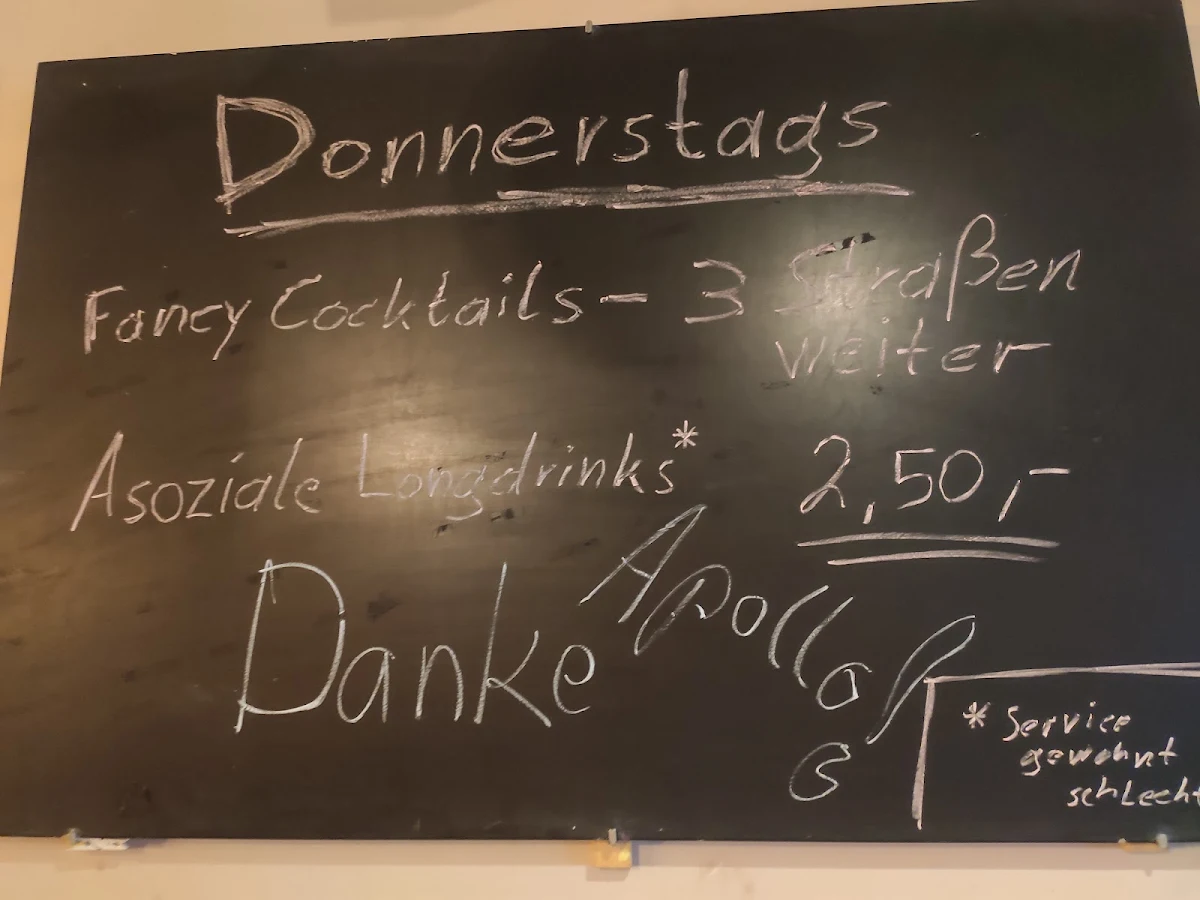 Donnerstags
Fancy Cocktails - 3 Straßen
weiter
Asoziale Longdrinks* 2,50,-
Danke Apollo!
* Service
gewohnt
schlecht